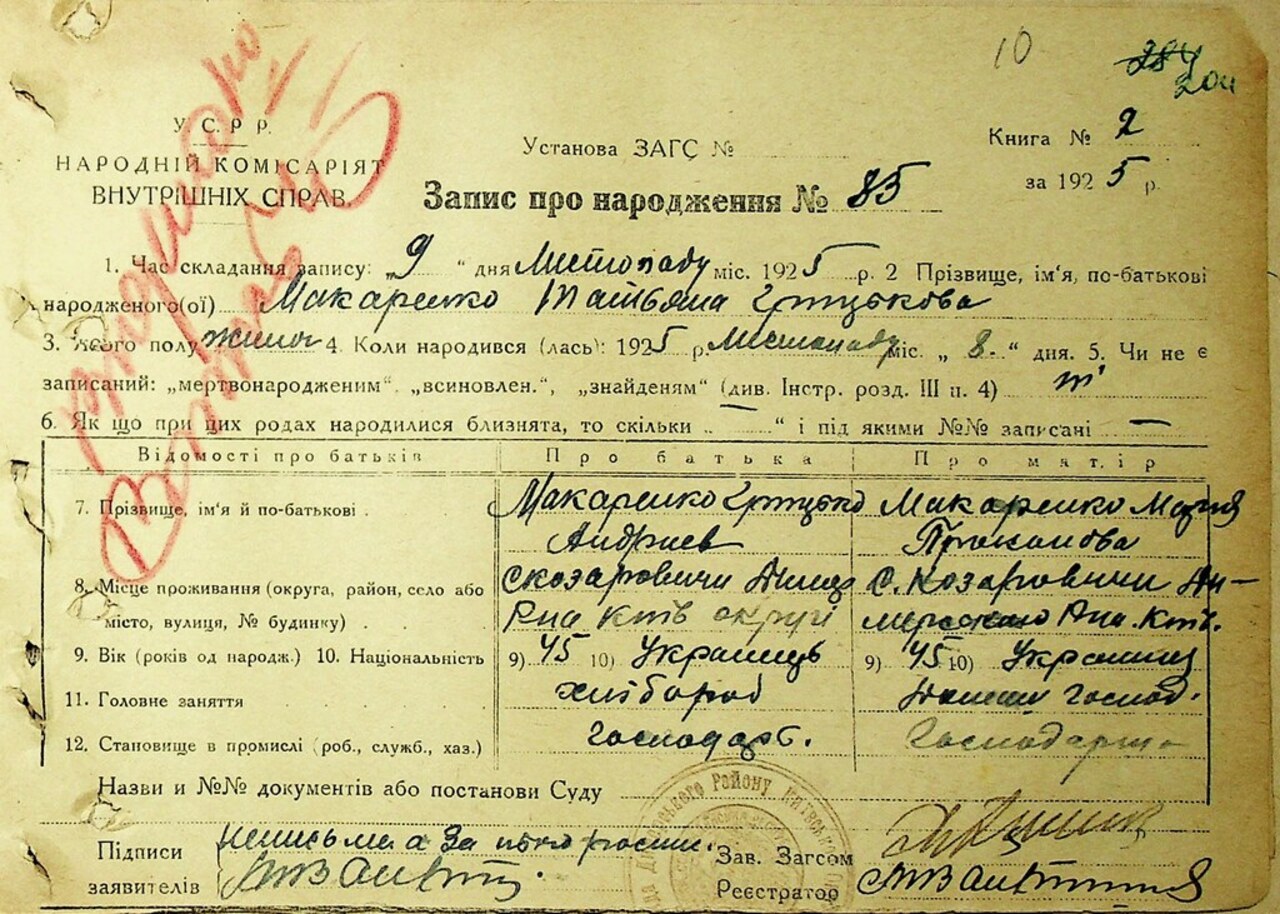 10
204
У.С.Р.Р.
НАРОДНІЙ КОМІСАРІЯТ
ВНУТРІШНІХ СПРАВ
Установа ЗАГС №
Книга № 2
за 1925 р.
Запис про народження № 85
1. Час складання запису: „9“ дня Листопаду міс. 1925 р. 2 Прізвище, ім'я, по-батькові
народженого(ої) Макаренко Татьяна Грицькова
3. Якого полу жіноч 4. Коли народився (лась): 1925 р. Листопаду міс. „8.“ дня. 5. Чи не є
записаний: „мертвонародженим“. „всиновлен.“, „знайденям“ (див. Інстр. розд. III п. 4) ні
6. Як що при цих родах народилися близнята, то скільки „ “ і під якими №№ записані —
Відомості про батьків Про батька Про матір
7. Прізвище, ім'я й по-батькові . Макаренко Грицько Макаренко Мария
Андриев Прокопова
8. Місце проживання (округа, район, село або с Козаровичи Димер с. Козаровичи Ди-
місто, вулиця, № будинку) . . Рна Київ округі мерського Рна. Київ.
9. Вік (років од народж.) 10. Національність 9) 45 10) Українець 9) 45 10) Українка
11. Головне заняття хлібороб господ.
12. Становище в промислі (роб., служб., хаз.) Господар Господарша
Назви и №№ документів або постанови Суду
Підписи
заявителів
неписьмена За
Зав. Загсом
Реєстратор